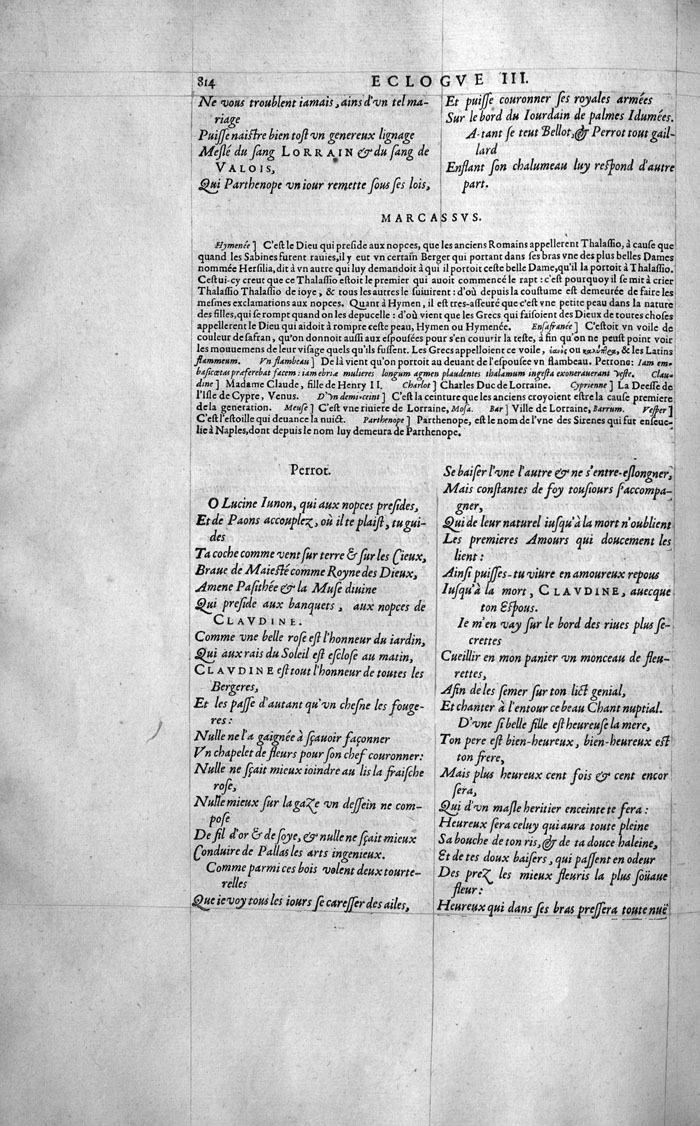 814
ECLOGVE III.
Ne vous troublent iamais, ains d'vn tel ma-
riage
Puisse naistre bien tost vn genereux lignage
Meslé du sang LORRAIN & du sang de
VALOIS,
Qui Parthenope vn iour remette sous ses lois,
Et puisse couronner ses royales armées
Sur le bord du Iourdain de palmes Idumées.
A-tant se teut Bellot, & Perrot tout gail-
lard
Enflant son chalumeau luy respond d'autre
part.
MARCASSVS.
Hymenée] C'est le Dieu qui preside aux nopces, que les anciens Romains appellerent Thalassio, à cause que
quand les Sabines furent rauies, il y eut vn certain Berger qui portant dans ses bras vne des plus belles Dames
nommée Hersilia, dit à vn autre qui luy demandoit à qui il portoit ceste belle Dame, qu'il la portoit à Thalassio.
Cestui-cy creut que ce Thalassio estoit le premier qui auoit commencé le rapt: c'est pourquoy il se mit à crier
Thalassio Thalassio de ioye, & tous les autres le suiuirent: d'où depuis la coustume est demeurée de faire les
mesmes exclamations aux nopces. Quant à Hymen, il est tres-asseuré que c'est vne petite peau dans la nature
des filles, qui se rompt quand on les depucelle: d'où vient que les Grecs qui faisoient des Dieux de toutes choses
appellerent le Dieu qui aidoit à rompre ceste peau, Hymen ou Hymenée. Ensafranée] C'estoit vn voile de
couleur de safran, qu'on donnoit aussi aux espousées pour s'en couurir la teste, à fin qu'on ne peust point voir
les mouuemens de leur visage quels qu'ils fussent. Les Grecs appelloient ce voile, ου & les Latins
flammeum. Vn flambeau] De là vient qu'on portoit au deuant de l'espousée vn flambeau. Petrone: Iam em-
basicœtas preferebat facem: iam ebriæ mulieres longum agmen plaudentes thalamum ingesta exonerauerant veste. Clau-
dine] Madame Claude, fille de Henry II. Charlot] Charles Duc de Lorraine. Cyprienne] La Deesse de
l'Isle de Cypre, Venus. D'vn demi-ceint] C'est la ceinture que les anciens croyoient estre la cause premiere
de la generation. Meuse] C'est vne riuiere de Lorraine, Mosa. Bar] Ville de Lorraine, Barrum. Vesper]
C'est l'estoille qui deuance la nuict. Parthenope] Parthenope, est le nom de l'vne des Sirenes qui fut enseue-
lie à Naples, dont depuis le nom luy demeura de Parthenope.
Perrot.
O Lucine Iunon, qui aux nopces presides,
Et de Paons accouplez, où il te plaist, tu gui-
des
Ta coche comme vent sur terre & sur les Cieux,
Braue de Maiesté comme Royne des Dieux,
Amene Pasithée & la Muse diuine
Qui preside aux banquets, aux nopces de
CLAVDINE.
Comme vne belle rose est l'honneur du iardin,
Qui aux rais du Soleil est esclose au matin,
CLAVDINE est tout l'honneur de toutes les
Bergeres,
Et les passe d'autant qu'vn chesne les fouge-
res:
Nulle ne l'a gaignée à sçauoir façonner
Vn chapelet de fleurs pour son chef couronner:
Nulle ne sçait mieux ioindre au lis la fraische
rose,
Nulle mieux sur la gaze vn dessein ne com-
pose
De fil d'or & de soye, & nulle ne sçait mieux
Conduire de Pallas les arts ingenieux.
Comme parmi ces bois volent deux tourte-
relles
Que ie voy tous les iours se caresser des ailes,
Se baiser l'vne l'autre & ne s'entre-eslongner,
Mais constantes de foy tousiours s'accompa-
gner,
Qui de leur naturel iusqu'à la mort n'oublient
Les premieres Amours qui doucement les
lient:
Ainsi puisses-tu viure en amoureux repous
Iusqu'à la mort, CLAVDINE, auecque
ton Espous.
Ie m'en vay sur le bord des riues plus se-
crettes
Cueillir en mon panier vn monceau de fleu-
rettes,
Afin de les semer sur ton lict genial,
Et chanter à l'entour ce beau Chant nuptial.
D'vne si belle fille est heureuse la mere,
Ton pere est bien-heureux, bien-heureux est
ton frere,
Mais plus heureux cent fois & cent encor
sera,
Qui d'vn masle heritier enceinte te fera:
Heureux sera celuy qui aura toute pleine
Sa bouche de ton ris, & de ta douce haleine,
Et de tes doux baisers, qui passent en odeur
Des prez les mieux fleuris la plus soüaue
fleur:
Heureux qui dans ses bras pressera toute nuë